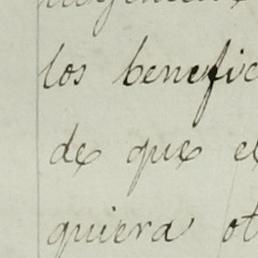 los benefic
de que el
quiera ot